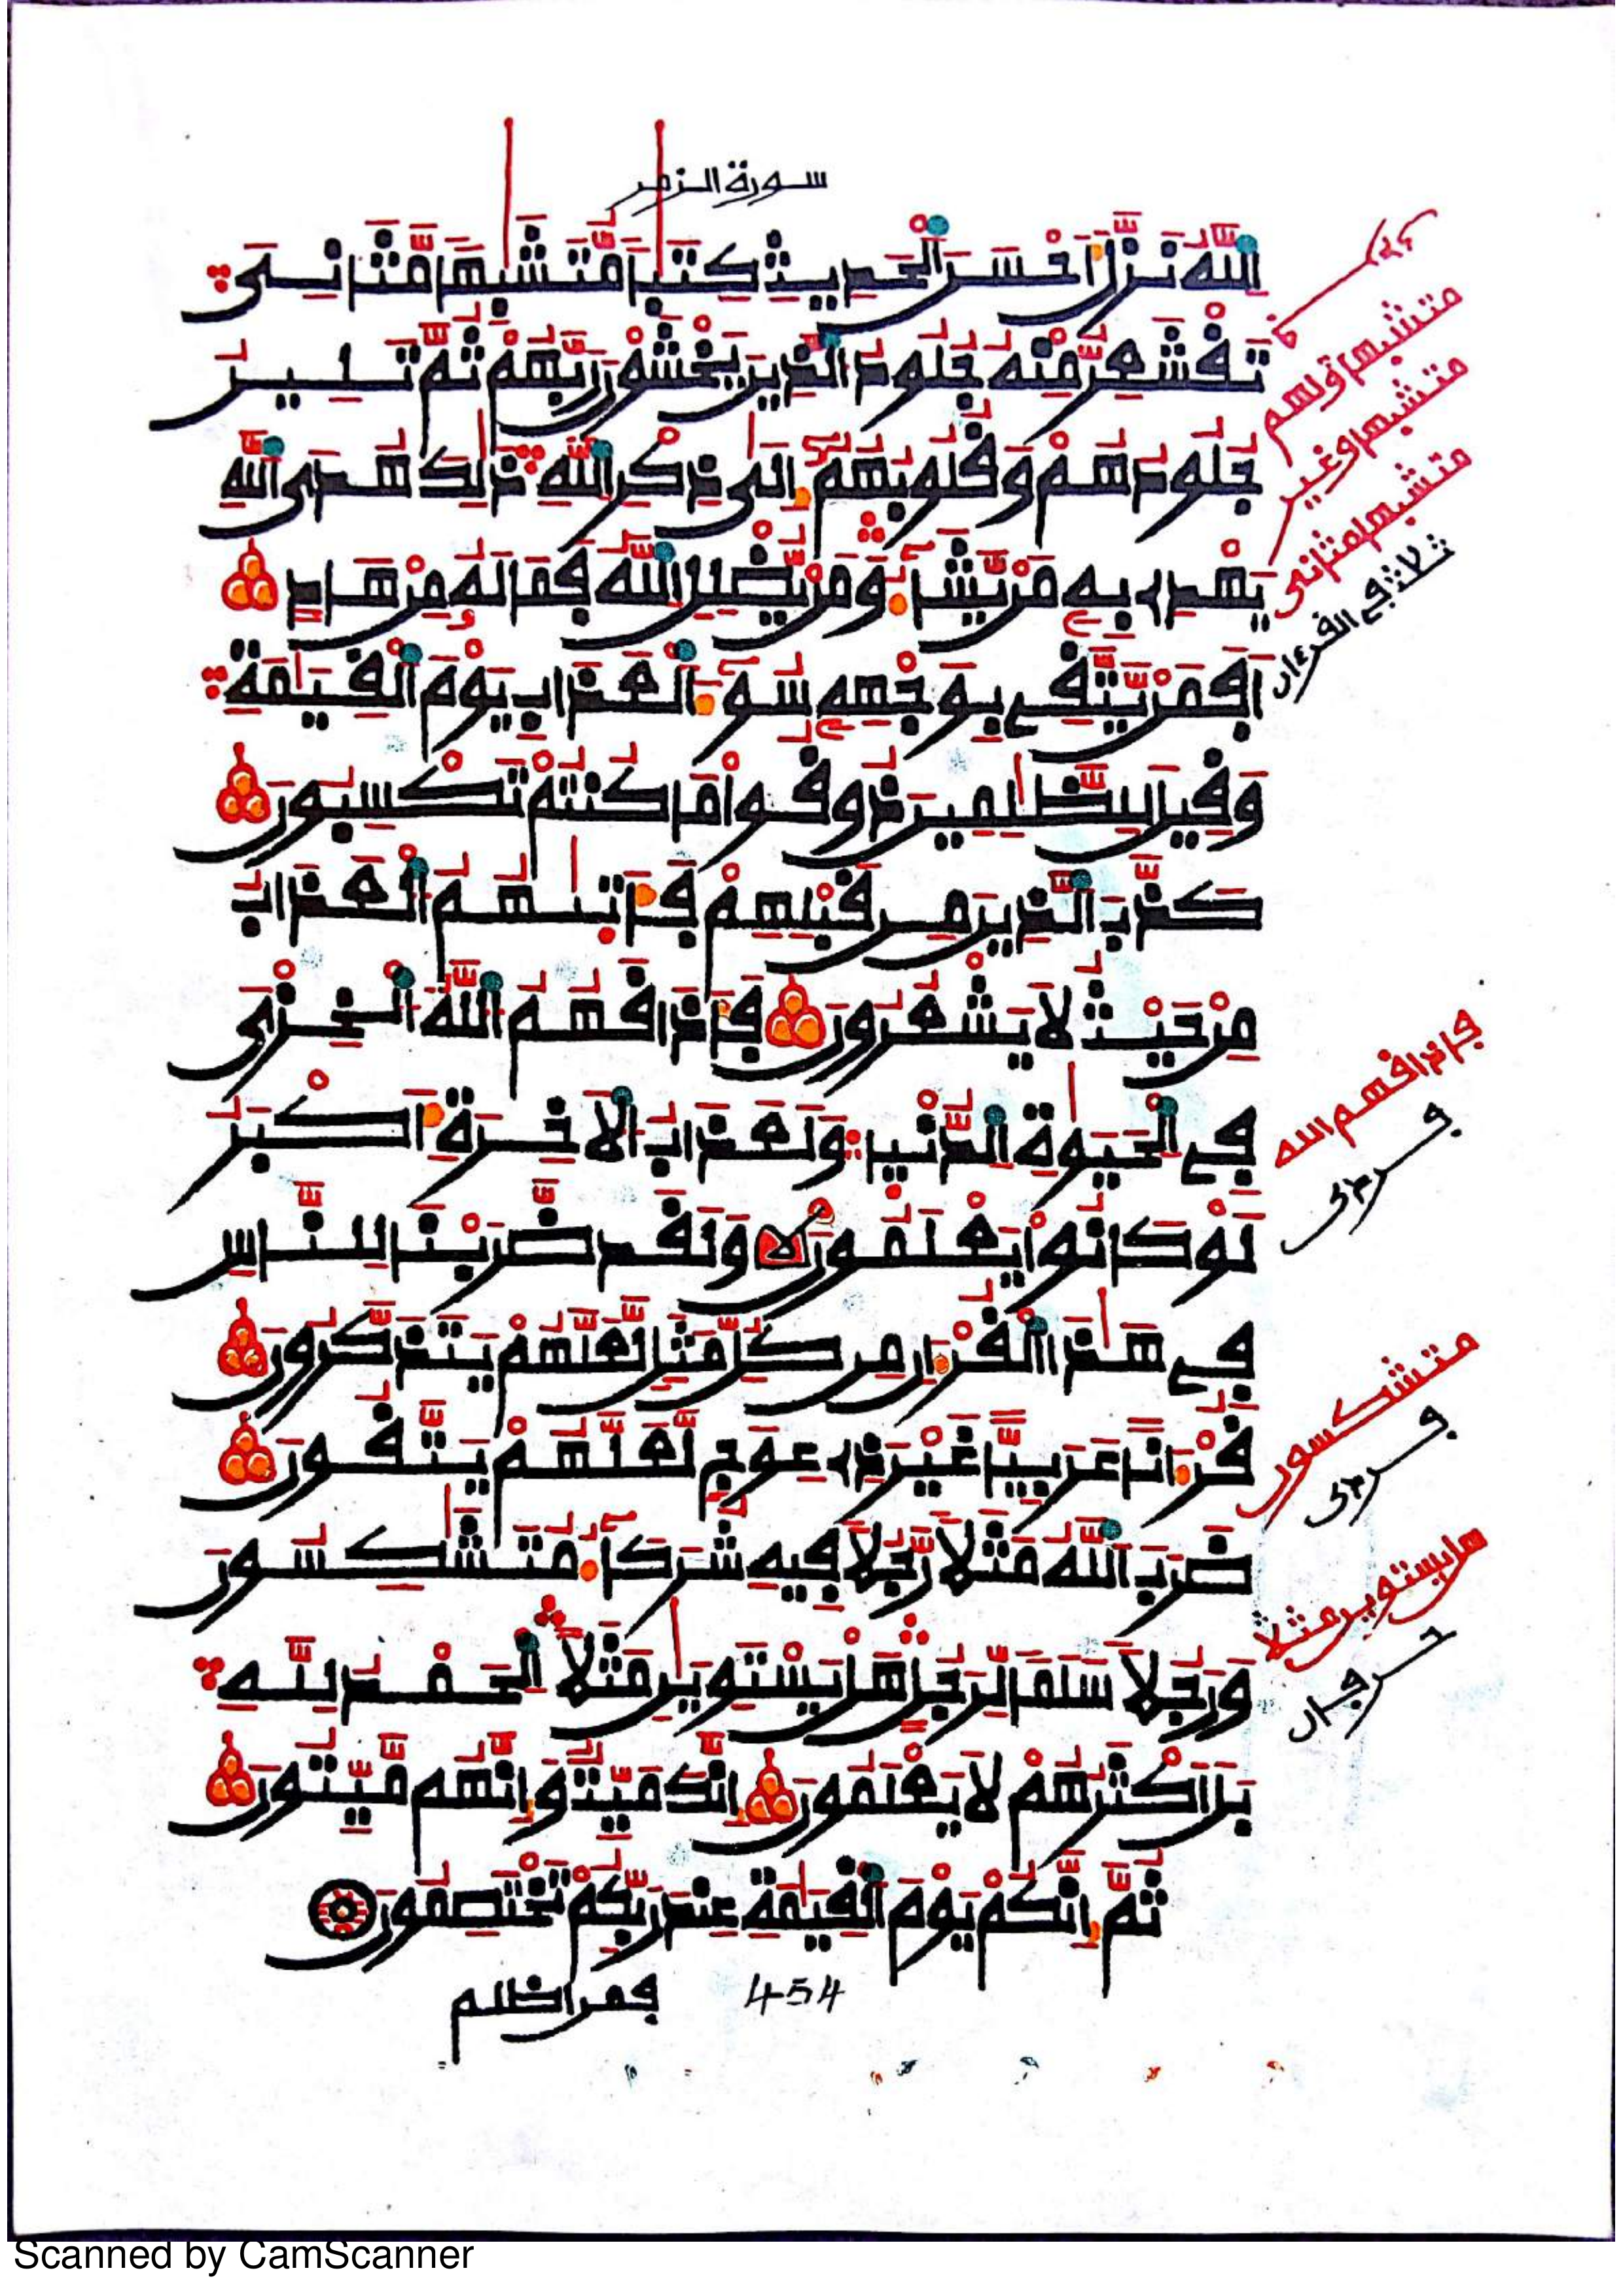 سورة الزمر
اَ۬للَّهُ نَزَّلَ أَحْسَنَ اَ۬لْحَدِيثِ كِتَٰباٗ مُّتَشَٰبِهاٗ مَّثَانِيَ
تَقْشَعِرُّ مِنْهُ جُلُودُ اُ۬لذِينَ يَخْشَوْنَ رَبَّهُمْ ثُمَّ تَلِينُ
جُلُودُهُمْ وَقُلُوبُهُمُۥٓ إِلَىٰ ذِكْرِ اِ۬للَّهِ ذَٰلِكَ هُدَى اَ۬للَّهِ
يَهْدِے بِهِۦ مَنْ يَّشَآءُ وَمَنْ يُّضْلِلِ اِ۬للَّهُ فَمَا لَهُۥ مِنْ هَادٍ
اَفَمَنْ يَّتَّقِے بِوَجْهِهِۦ سُوٓءَ اَ۬لْعَذَابِ يَوْمَ اَ۬لْقِيَٰمَةِ
وَقِيلَ لِلظَّٰلِمِينَ ذُوقُواْ مَا كُنتُمْ تَكْسِبُونَ
كَذَّبَ اَ۬لذِينَ مِن قَبْلِهِمْ فَأَتَىٰهُمُ اُ۬لْعَذَابُ
مِنْ حَيْثُ لَا يَشْعُرُونَ فَأَذَاقَهُمُ اُ۬للَّهُ اُ۬لْخِزْيَ
فِے اِ۬لْحَيَوٰةِ اِ۬لدُّنْيَا وَلَعَذَابُ اُ۬لَاخِرَةِ أَكْبَرُ
لَوْ كَانُواْ يَعْلَمُونَ وَلَقَد ضَّرَبْنَا لِلنَّاسِ
فِے هَٰذَا اَ۬لْقُرْءَانِ مِن كُلِّ مَثَلٖ لَّعَلَّهُمْ يَتَذَكَّرُونَ
قُرْءَاناً عَرَبِيّاً غَيْرَ ذِے عِوَجٖ لَّعَلَّهُمْ يَتَّقُونَ
ضَرَبَ اَ۬للَّهُ مَثَلاٗ رَّجُلاٗ فِيهِ شُرَكَآءُ مُتَشَٰكِسُونَ
وَرَجُلاٗ سَلَماٗ لِّرَجُلٍ هَلْ يَسْتَوِيَٰنِ مَثَلاً اِ۬لْحَمْدُ لِلهِ
بَلَ اَكْثَرُهُمْ لَا يَعْلَمُونَ إِنَّكَ مَيِّتٞ وَإِنَّهُم مَّيِّتُونَ
ثُمَّ إِنَّكُمْ يَوْمَ اَ۬لْقِيَٰمَةِ عِندَ رَبِّكُمْ تَخْتَصِمُونَ
فمن اظلم
454
متشبها ولهم
متشبها وغير
متشبها مثاني
ثلاث في القرءان
فاذاقهم الله
متشكسون
هل يستوين مثلا
Scanned by CamScanner